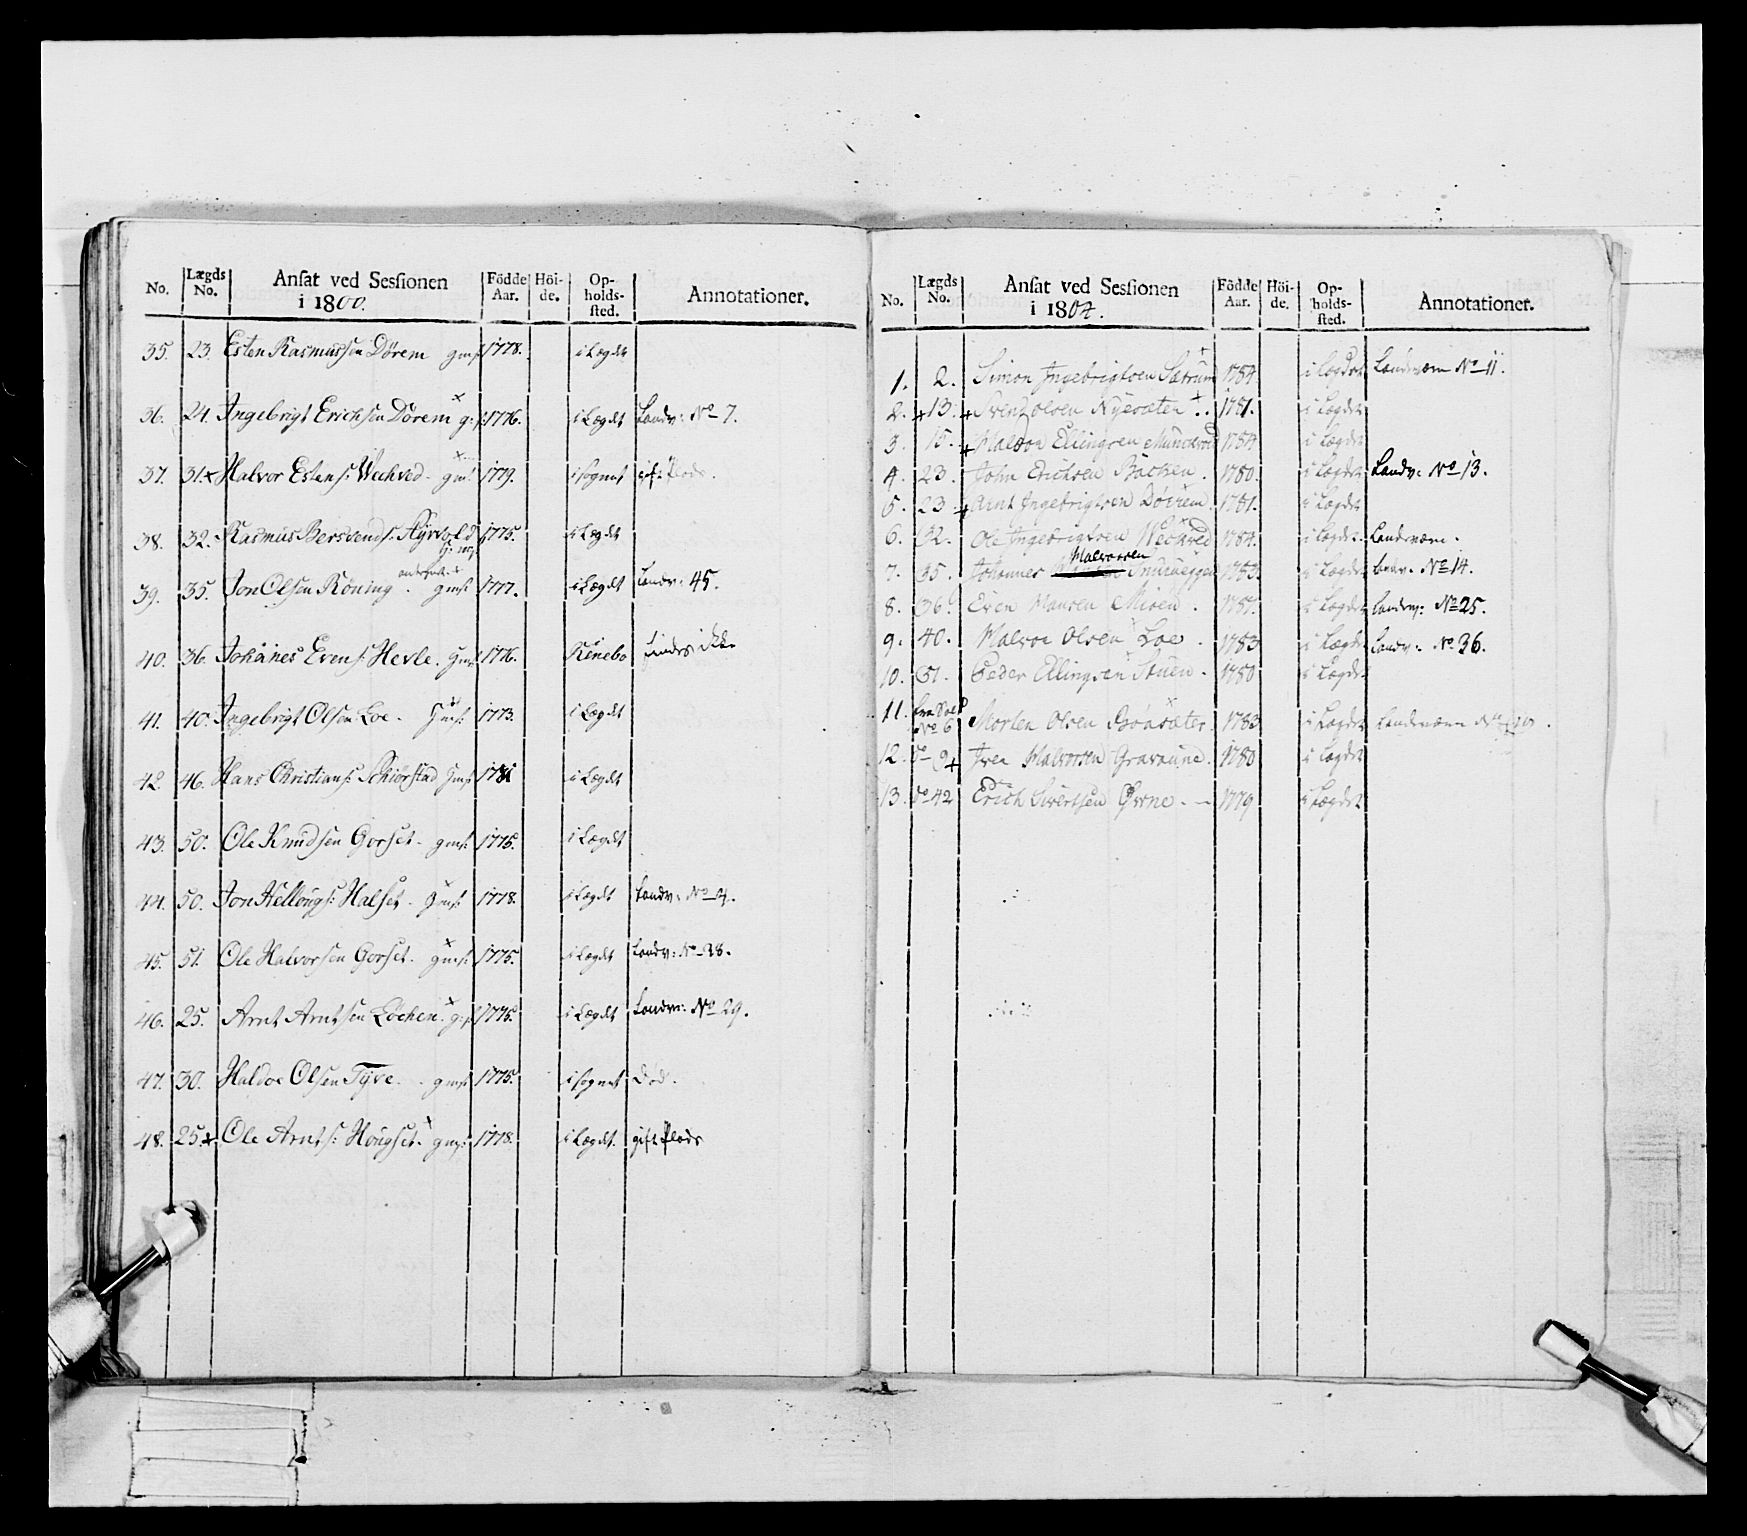 No. Lægds No. Ansat ved Sessionen i 1800. Födde Aar. Höi- de. Op- holds- sted. Annotationer.
35. 23. Esten Rasmussen Dörem gms: 1778. i Lægdt
36. 24. Ingebrigt Erichsen Dörem g: 1776. i Lægdt Landv: No 7.
37. 31. Halvor Estens: Wechved. gms: 1779. i sognet gift Plads.
38. 32. Rasmus Bersvends: 1775. i Lægdt
39. 35. Jon Olsen Röning. gms: 1777. i Lægdt Landv: 45.
40. 36. Johannes Evens: Hevle. gms: 1776. findes ikke
41. 40. Ingebrigt Olsen Loe. gms: 1773. i Lægdt
42. 46. Hans Christians: Schiörstad gms: i Lægdt
43. 50. Ole Knudsen Gorset. gms: 1775. i Lægdt
44. 50. Jon Hellougs: Halset. gms: 1778. i Lægdt Landv: No 4.
45. 51. Ole Halvorsen Gorset. gms: 1775. i Lægdt Landv: No 28.
46. 25. Arnt Arntsen Löchen. 1775. i Lægdt Landv: No 29.
47. 30. Haldoe Olsen Tyve. gms: 1775. i sognet död.
48. 25. Ole Arnts: Hougset. gms: 1778. i Lægdt. gift Plads
No. Lægds No. Ansat ved Sessionen i 1804. Födde Aar. Höi- de. Op- holds- sted. Annotationer.
1. 2. Simon Ingebrigtsen Sætrum 1784 i Lægdet Landværn No 11.
2. 13. Svend Olsen Nyesæter 1781. i Lægdet
3. 15. Ellingsen 1784 i Lægdet
4. 23. John Erichsen Backen. 1780. i Lægdet Landv: No 13.
5. 23. Arnt Ingebrigtsen Dörrem. 1781. i Lægdet
6. 32. Ole Ingebrigtsen Wechved 1784. i Lægdet. Landværn.
7. 35. Johannes Halvorsen 1783. i Lægdet Landv. No 14.
8. 36. Even Hansen Moen. i Lægdet Landv: No 25.
9. 40. Halvor Olsen Loe. 1783 i Lægdet Landv: No 36.
10. 51. Peder Ellingsen Stuen. 1780 i Lægdet
11. No 6 Morten Olsen 1783 i Lægdet Landværn
12. do 9 Iver Halvorsen Gravaune. 1780 i Lægdet
13. do 42 Erich Sivertsen Øvne. 1779 i Lægdet